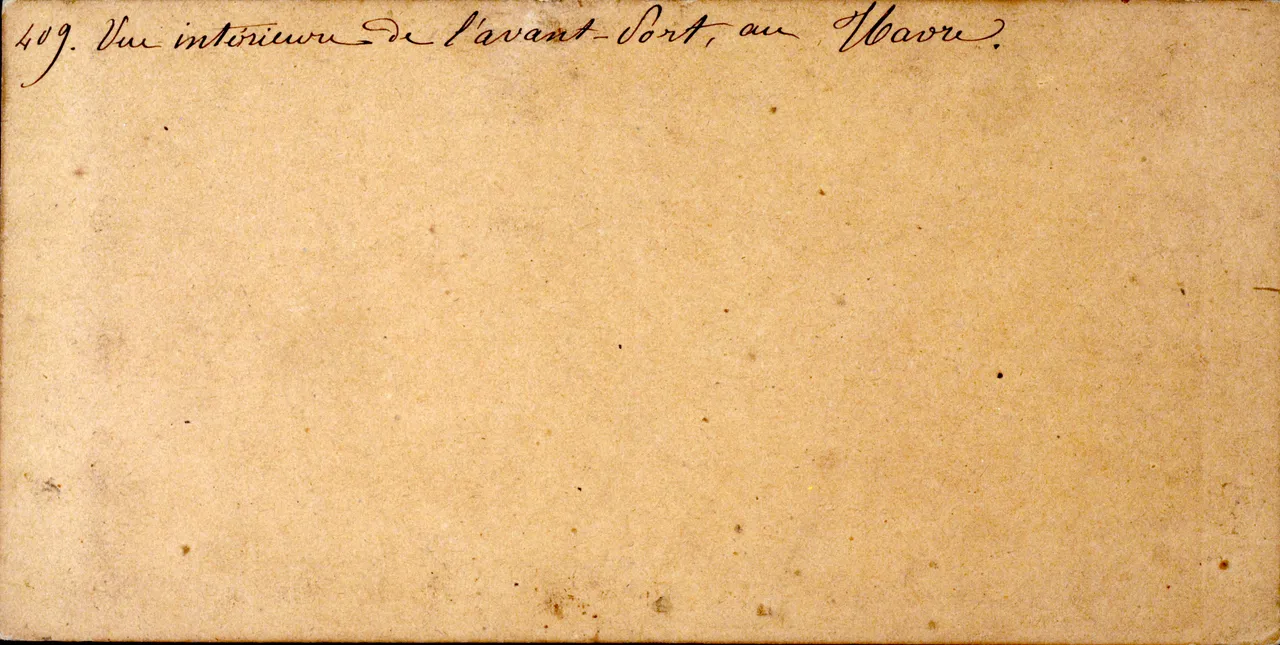 409. Vue intérieure de l'avant-Port, au Havre.